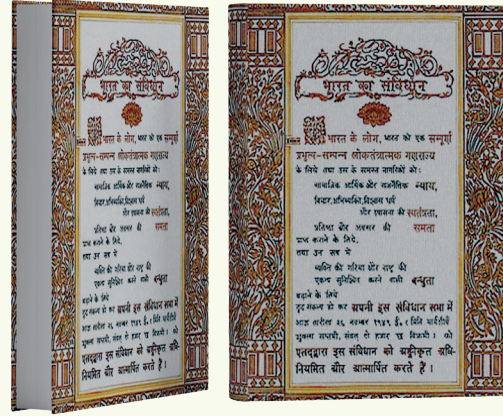 भारत का संविधान
भारत के लोग, भारत को एक सम्पूर्ण
प्रभुत्व-सम्पन्न लोकतंत्रात्मक गणराज्य
के लिये तथा उस के समस्त नागरिकों को:
सामाजिक आर्थिक और राजनैतिक न्याय,
विचार,अभिव्यक्ति,विश्वास धर्म
और उपासना की स्वतंत्रता,
प्रतिष्ठा और अवसर की समता
प्राप्त कराने के लिये,
तथा उन सब में
व्यक्ति की गरिमा और राष्ट्र की
एकता सुनिश्चित करने वाली बन्धुता
बढ़ाने के लिये
दृढ़ संकल्प हो कर अपनी इस संविधान सभा में
आज तारीख २६ नवम्बर १९४९ ई. (मिति मार्गशीर्ष
शुक्ला सप्तमी, संवत् दो हजार छह विक्रमी) को
एतद्द्वारा इस संविधान को अङ्गीकृत अधि-
नियमित और आत्मार्पित करते हैं।
भारत का संविधान
भारत के लोग, भारत को एक सम्पूर्ण
प्रभुत्व-सम्पन्न लोकतंत्रात्मक गणराज्य
के लिये तथा उस के समस्त नागरिकों को:
सामाजिक आर्थिक और राजनैतिक न्याय,
विचार,अभिव्यक्ति,विश्वास धर्म
और उपासना की स्वतंत्रता,
प्रतिष्ठा और अवसर की समता
प्राप्त कराने के लिये,
तथा उन सब में
व्यक्ति की गरिमा और राष्ट्र की
एकता सुनिश्चित करने वाली बन्धुता
बढ़ाने के लिये
दृढ़ संकल्प हो कर अपनी इस संविधान सभा में
आज तारीख २६ नवम्बर १९४९ ई. (मिति मार्गशीर्ष
शुक्ला सप्तमी, संवत् दो हजार छह विक्रमी) को
एतद्द्वारा इस संविधान को अङ्गीकृत अधि-
नियमित और आत्मार्पित करते हैं।